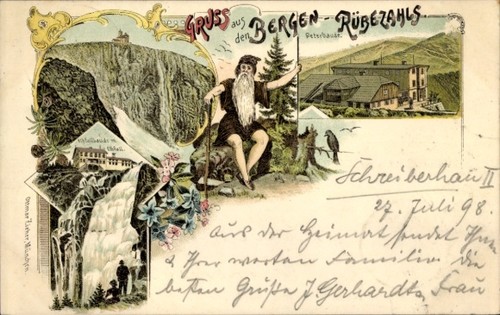 GRUSS aus den BERGEN - RÜBEZAHLS.
Peterbaude.
Elbfallbaude u. Elbfall.
Schreiberhau II
27. Juli 98.
Aus der Heimat sendet Ihnen
& Ihrer werten Familie die
besten Grüße J. Gerhardt u. Frau